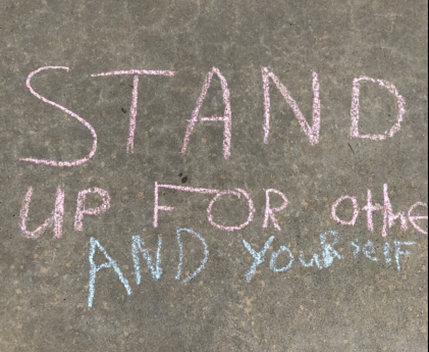 STAND
UP FOR othe
AND YouRself